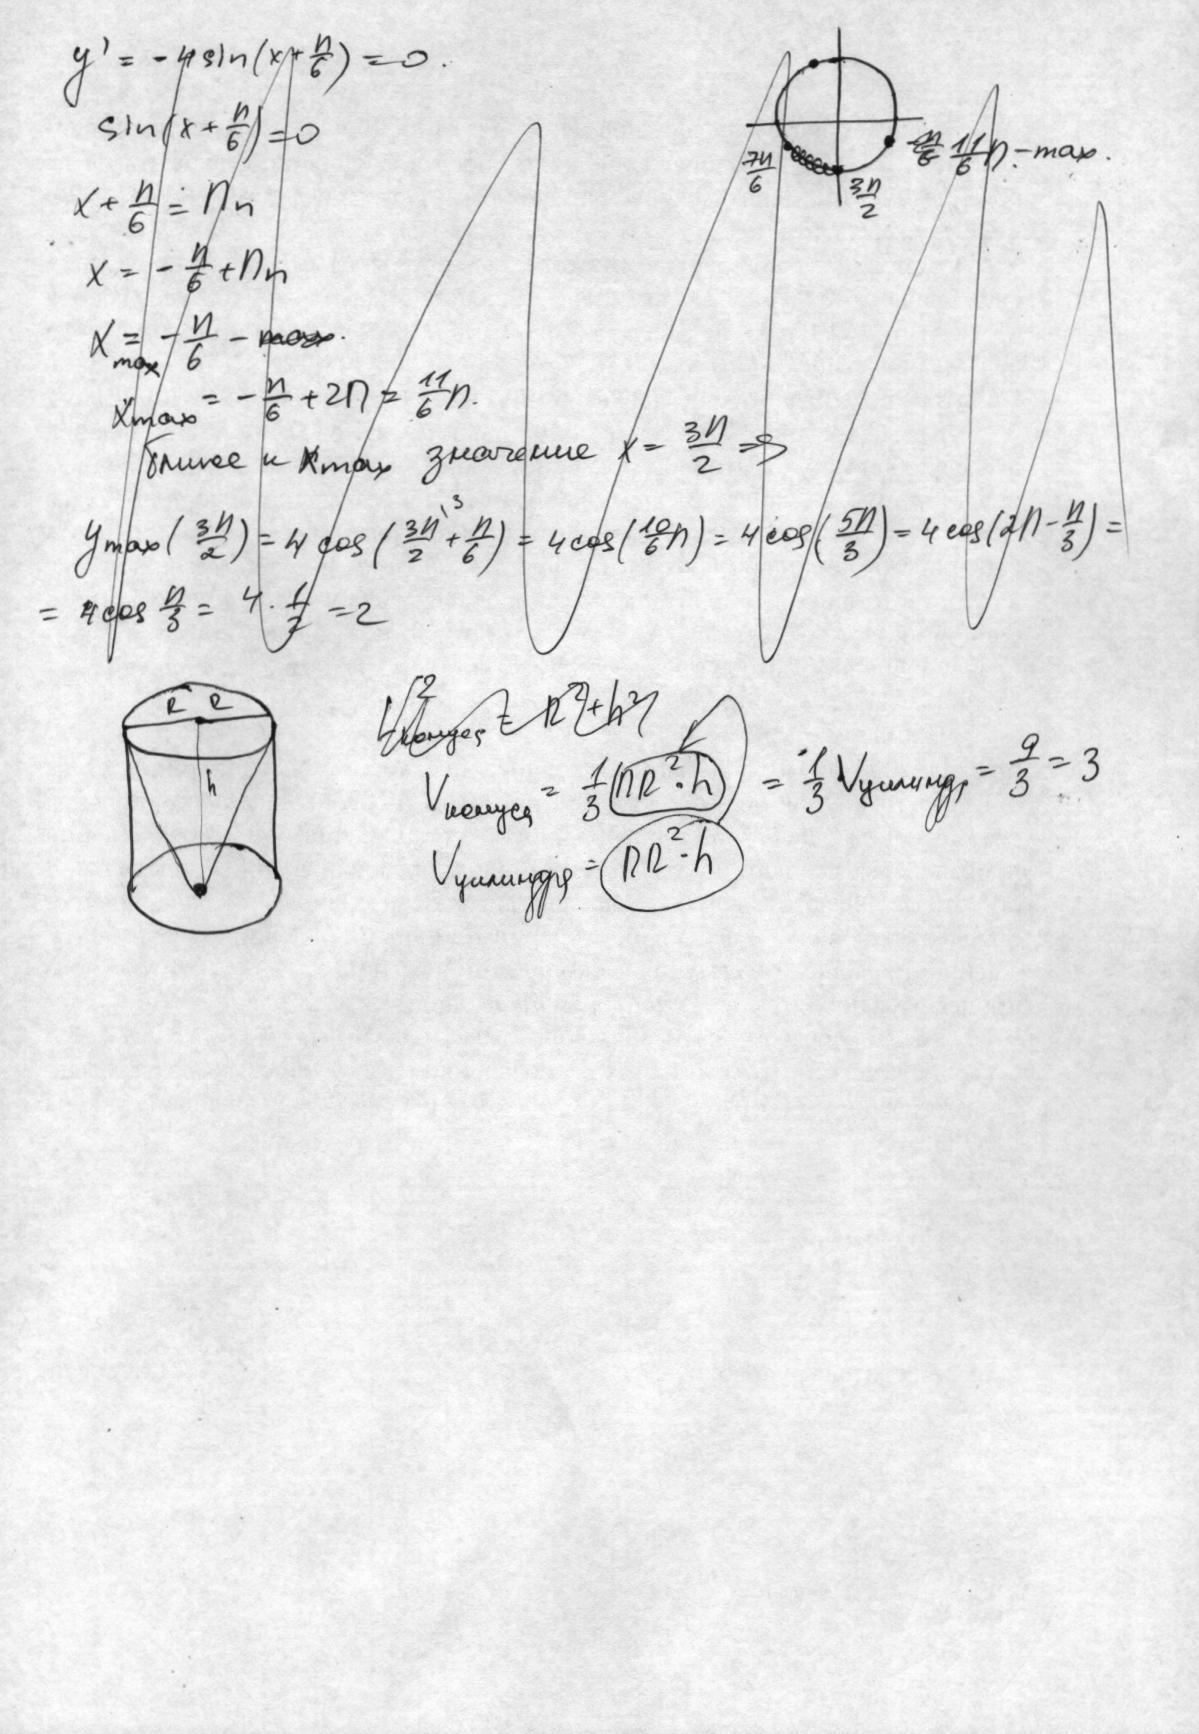 y' = -4 sin(x + π/6) = 0.
sin(x + π/6) = 0
x + π/6 = πn
x = -π/6 + πn
x max = -π/6 - max.
x max = -π/6 + 2π = 11/6 π.
7π/6
3π/2
11/6 π - max.
ближе к x max значение x = 3π/2 =>
y max (3π/2) = 4 cos(3π/2 \3 + π/6) = 4cos(10/6 π) = 4 cos(5π/3) = 4 cos(2π - π/3) =
= 4 cos π/3 = 4 · 1/2 = 2
R R
h
L² конуса = R² + h²
V конуса = 1/3 πR² · h = 1/3 V цилиндр = 9/3 = 3
V цилиндра = πR² · h